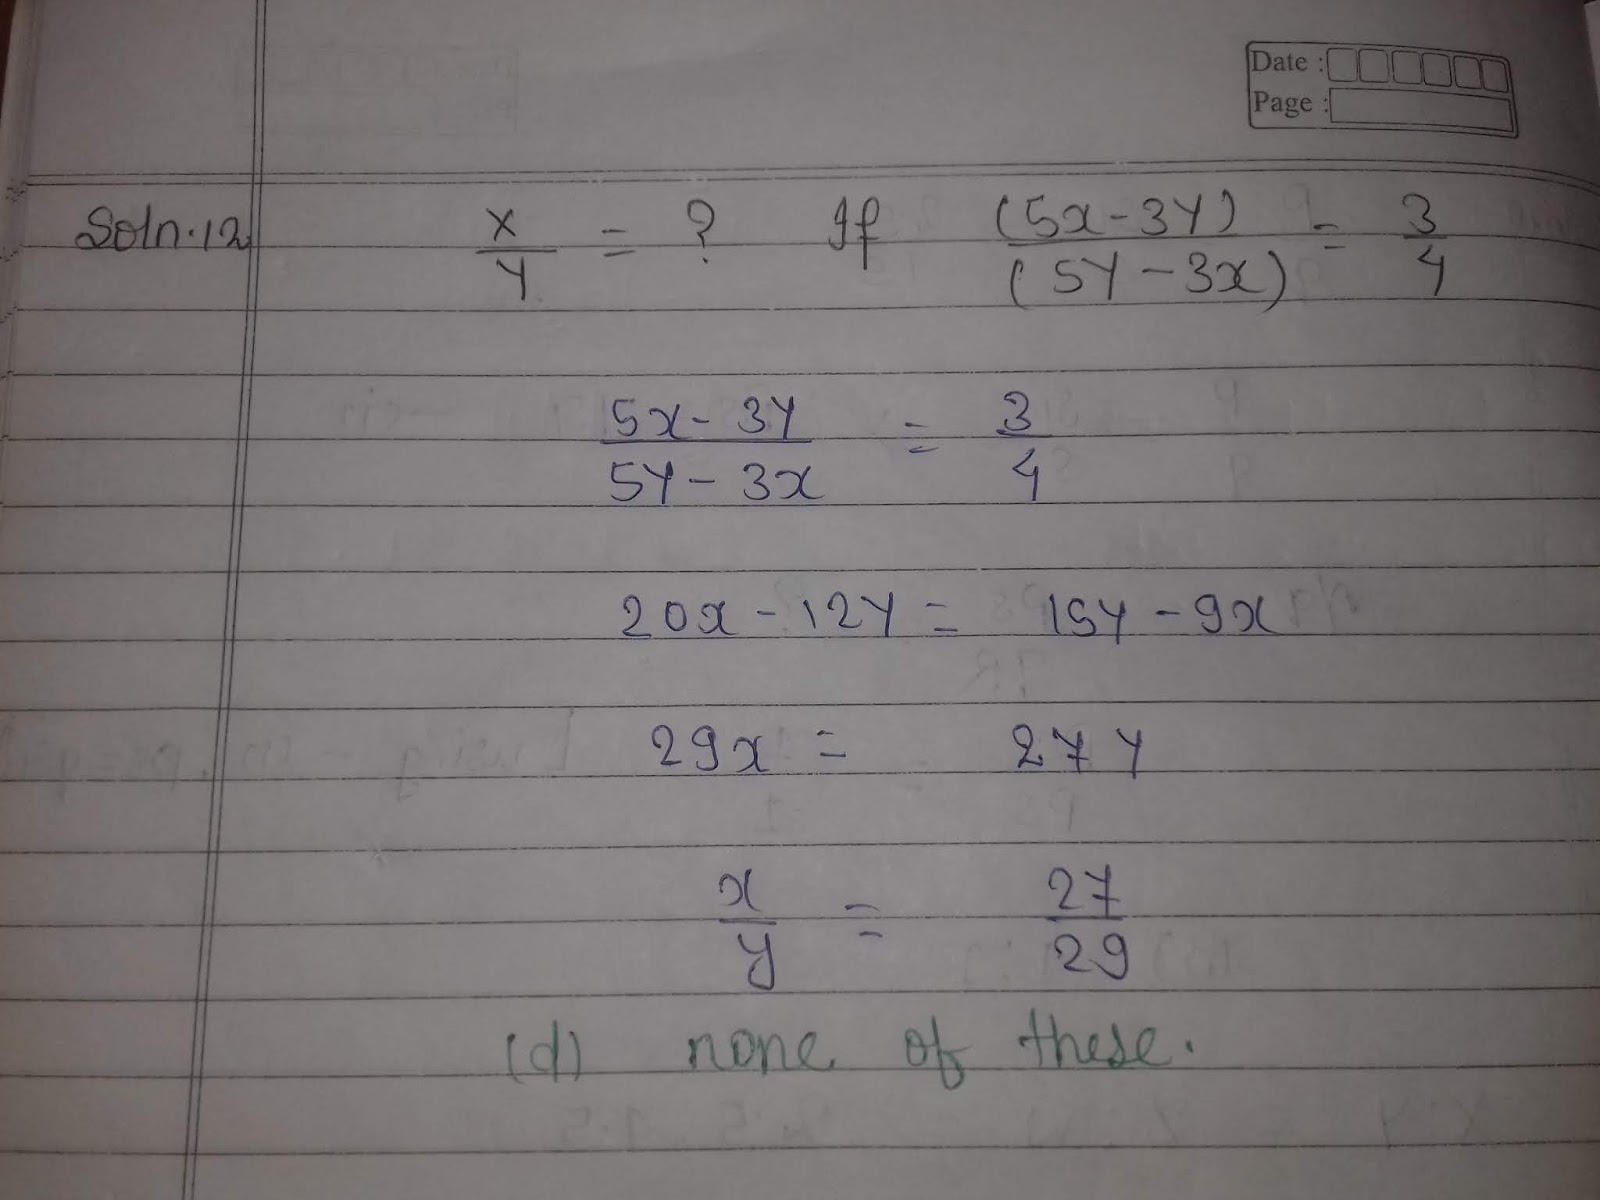 Date :
Page :
Soln.12 x/y = ? If (5x-3y)/(5y-3x) = 3/4
5x-3y/5y-3x = 3/4
20x-12y = 15y-9x
29x = 27y
x/y = 27/29
(d) none of these.